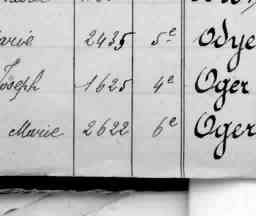 arie 2435 5e Odye
Joseph 1625 4e Oger
Marie 2622 6e Oger